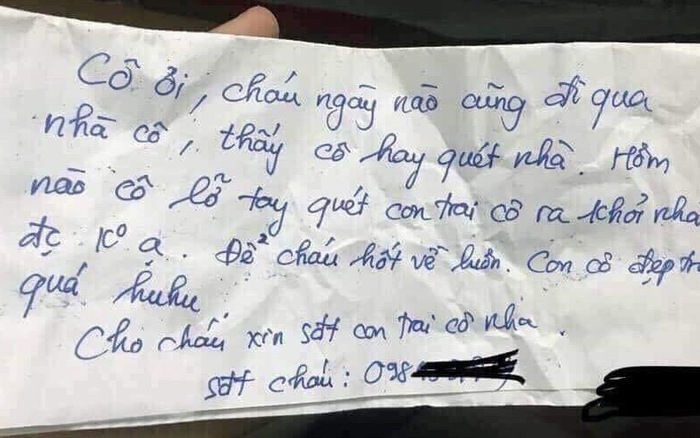 Cô ơi, cháu ngày nào cũng đi qua
nhà cô, thấy cô hay quét nhà. Hôm
nào cô lỡ tay quét con trai cô ra khỏi nhà
đc ko ạ. Để cháu hốt về luôn. Con cô đẹp tr
quá huhu
Cho cháu xin sđt con trai cô nha.
sđt cháu: 098